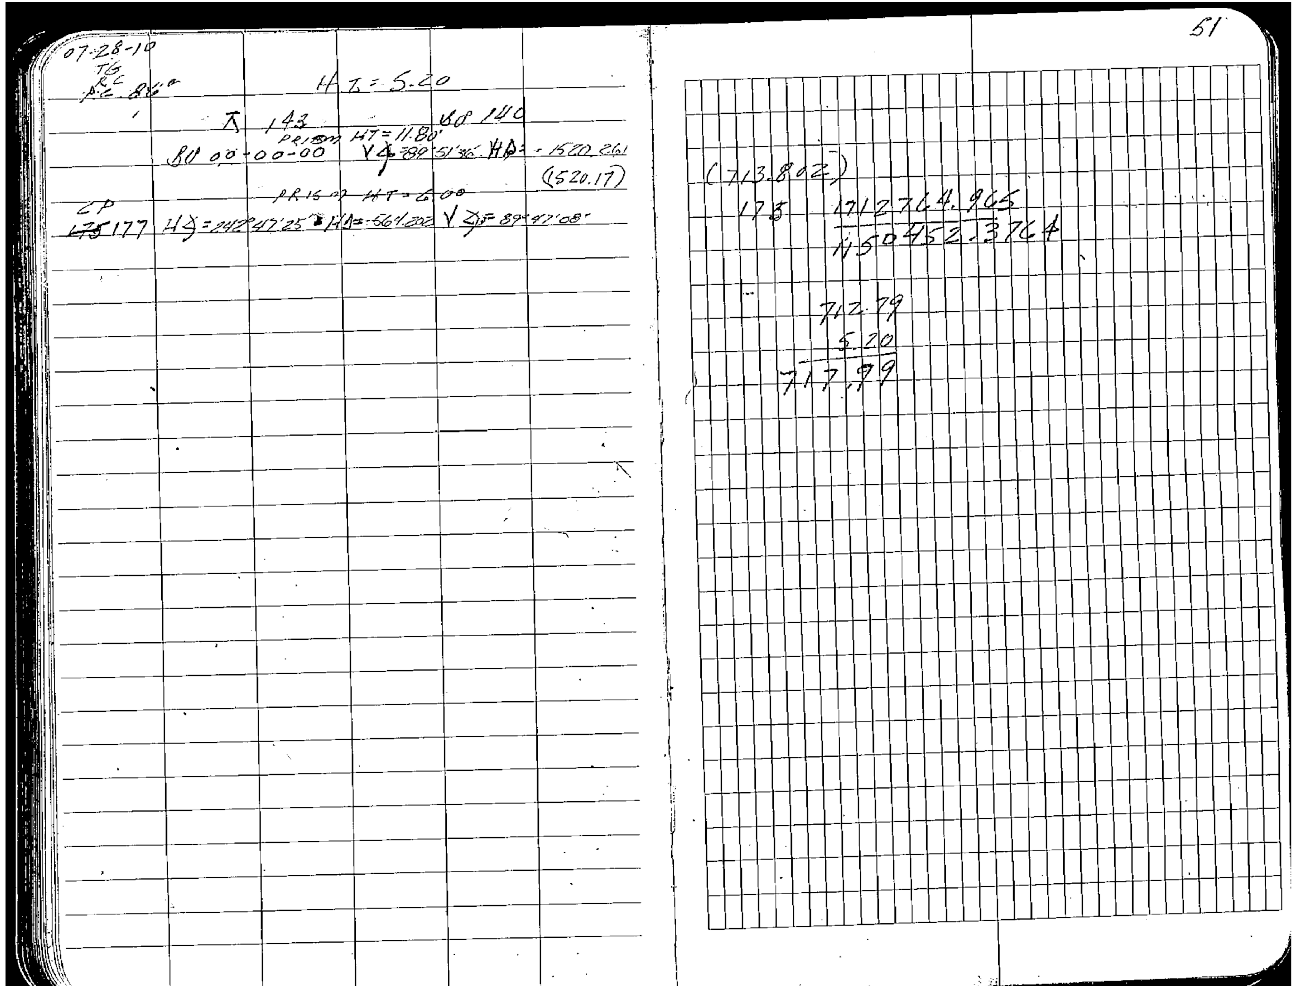 51
07-28-10
TG
RC
P.C. 86°
H I = 5.20
⊼ 143 BS 140
PRISM HT = 11.80'
BS 00-00-00 V∠=89°51'36" HD= 1520.261
(1520.17)
PRISM HT = 6.00
CP
175 177 H∠=242°47'25" HD= 561.202 V∠= 89°47'08"
(713.802)
175 1712764.965
1,150452.3764
712.79
5.20
717.99